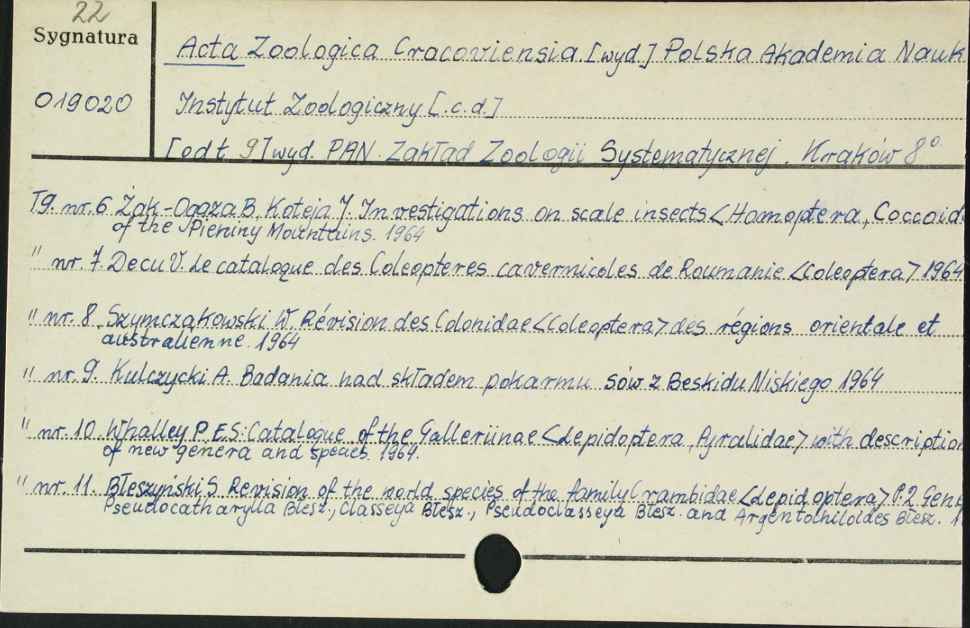 22
Sygnatura
Acta Zoologica Cracoviensia. [wyd.] Polska Akademia Nauk
019020
Instytut Zoologiczny [.c.d.]
[od t. 9] wyd. PAN. Zakład Zoologii Systematycznej. Kraków 8°
T9. nr. 6 Żak-Ogaza B., Koteja J. Investigations on scale insects <Homoptera, Coccoid
of the Pieniny Mountains. 1964
" nr. 7 Decu V. Le catalogue des Coleopteres cavernicoles de Roumanie <Coleoptera> 1964
" nr. 8. Szymczakowski W. Révision des Colonidae <Coleoptera> des régions orientale et
australienne. 1964
" nr. 9. Kulczycki A. Badania nad składem pokarmu sów z Beskidu Niskiego 1964
" nr. 10. Whalley P.E.S. Catalogue of the Galleriinae <Lepidoptera, Pyralidae> with description
of new genera and species. 1964.
" nr. 11. Błeszyński S. Revision of the world species of the family Crambidae <Lepidoptera> P.2 Gene
Pseudocatharylla Błesz., Classeya Błesz., Pseudoclasseya Błesz. and Argentochiloides Błesz. 1